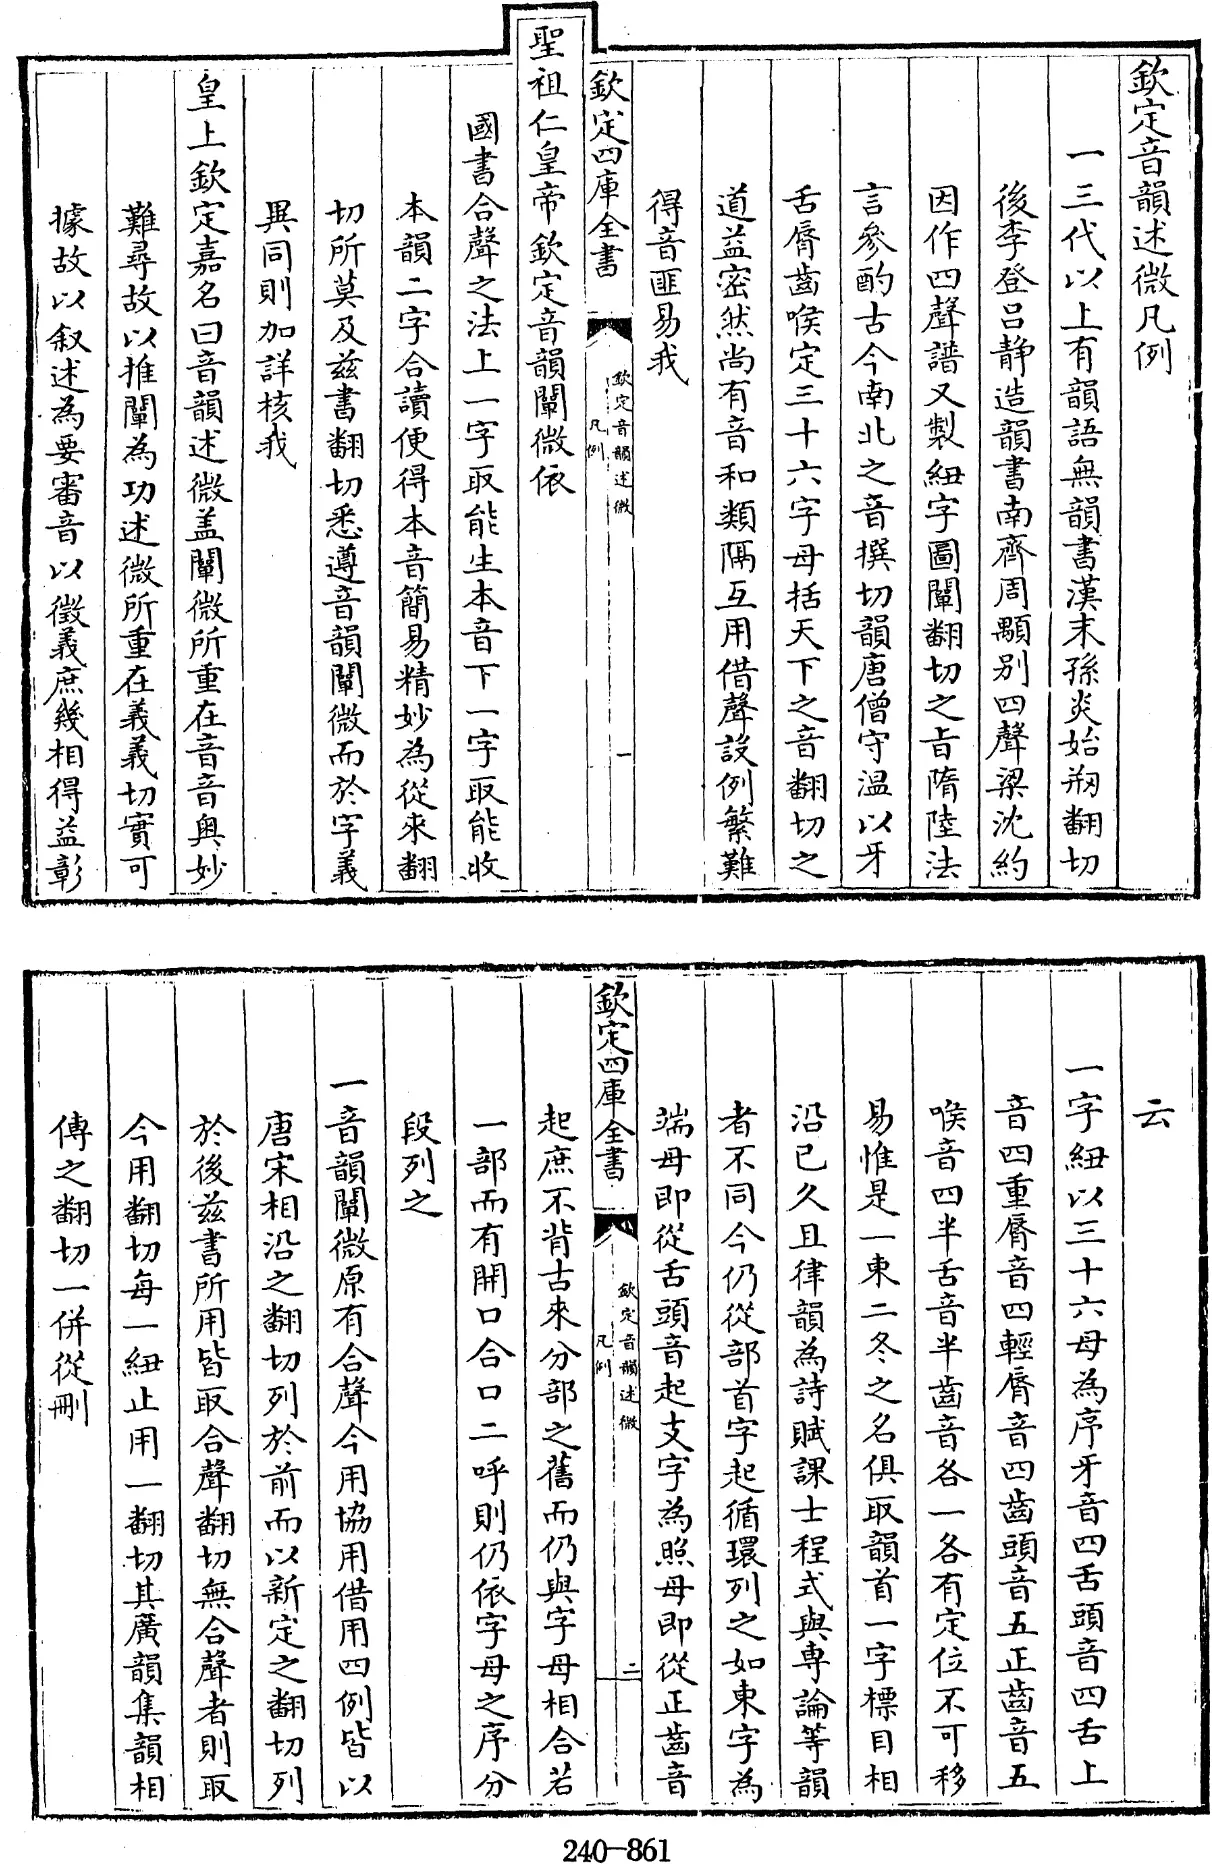 欽定音韻述微凡例
一三代以上有韻語無韻書漢末孫炎始剏翻切
後李登呂静造韻書南齊周顒别四聲梁沈約
因作四聲譜又製紐字圖闡翻切之㫖隋陸法
言參酌古今南北之音撰切韻唐僧守温以牙
舌脣齒喉定三十六字母括天下之音翻切之
道益密然尚有音和類隔互用借聲設例繁難
得音匪易我
欽定四庫全書
欽定音韻述微
凡例
一
聖祖仁皇帝欽定音韻闡微依
國書合聲之法上一字取能生本音下一字取能收
本韻二字合讀便得本音簡易精妙為從來翻
切所莫及兹書翻切悉遵音韻闡微而於字義
異同則加詳核我
皇上欽定嘉名曰音韻述微盖闡微所重在音音奥妙
難尋故以推闡為功述微所重在義義切實可
據故以叙述為要審音以徵義庶幾相得益彰
云
一字紐以三十六母為序牙音四舌頭音四舌上
音四重脣音四輕脣音四齒頭音五正齒音五
喉音四半舌音半齒音各一各有定位不可移
易惟是一東二冬之名俱取韻首一字標目相
沿已久且律韻為詩賦課士程式與專論等韻
者不同今仍從部首字起循環列之如東字為
端母即從舌頭音起支字為照母即從正齒音
欽定四庫全書
欽定音韻述微
凡例
二
起庶不背古來分部之舊而仍與字母相合若
一部而有開口合口二呼則仍依字母之序分
段列之
一音韻闡微原有合聲今用協用借用四例皆以
唐宋相沿之翻切列於前而以新定之翻切列
於後兹書所用皆取合聲翻切無合聲者則取
今用翻切每一紐止用一翻切其廣韻集韻相
傳之翻切一併從刪
240-861